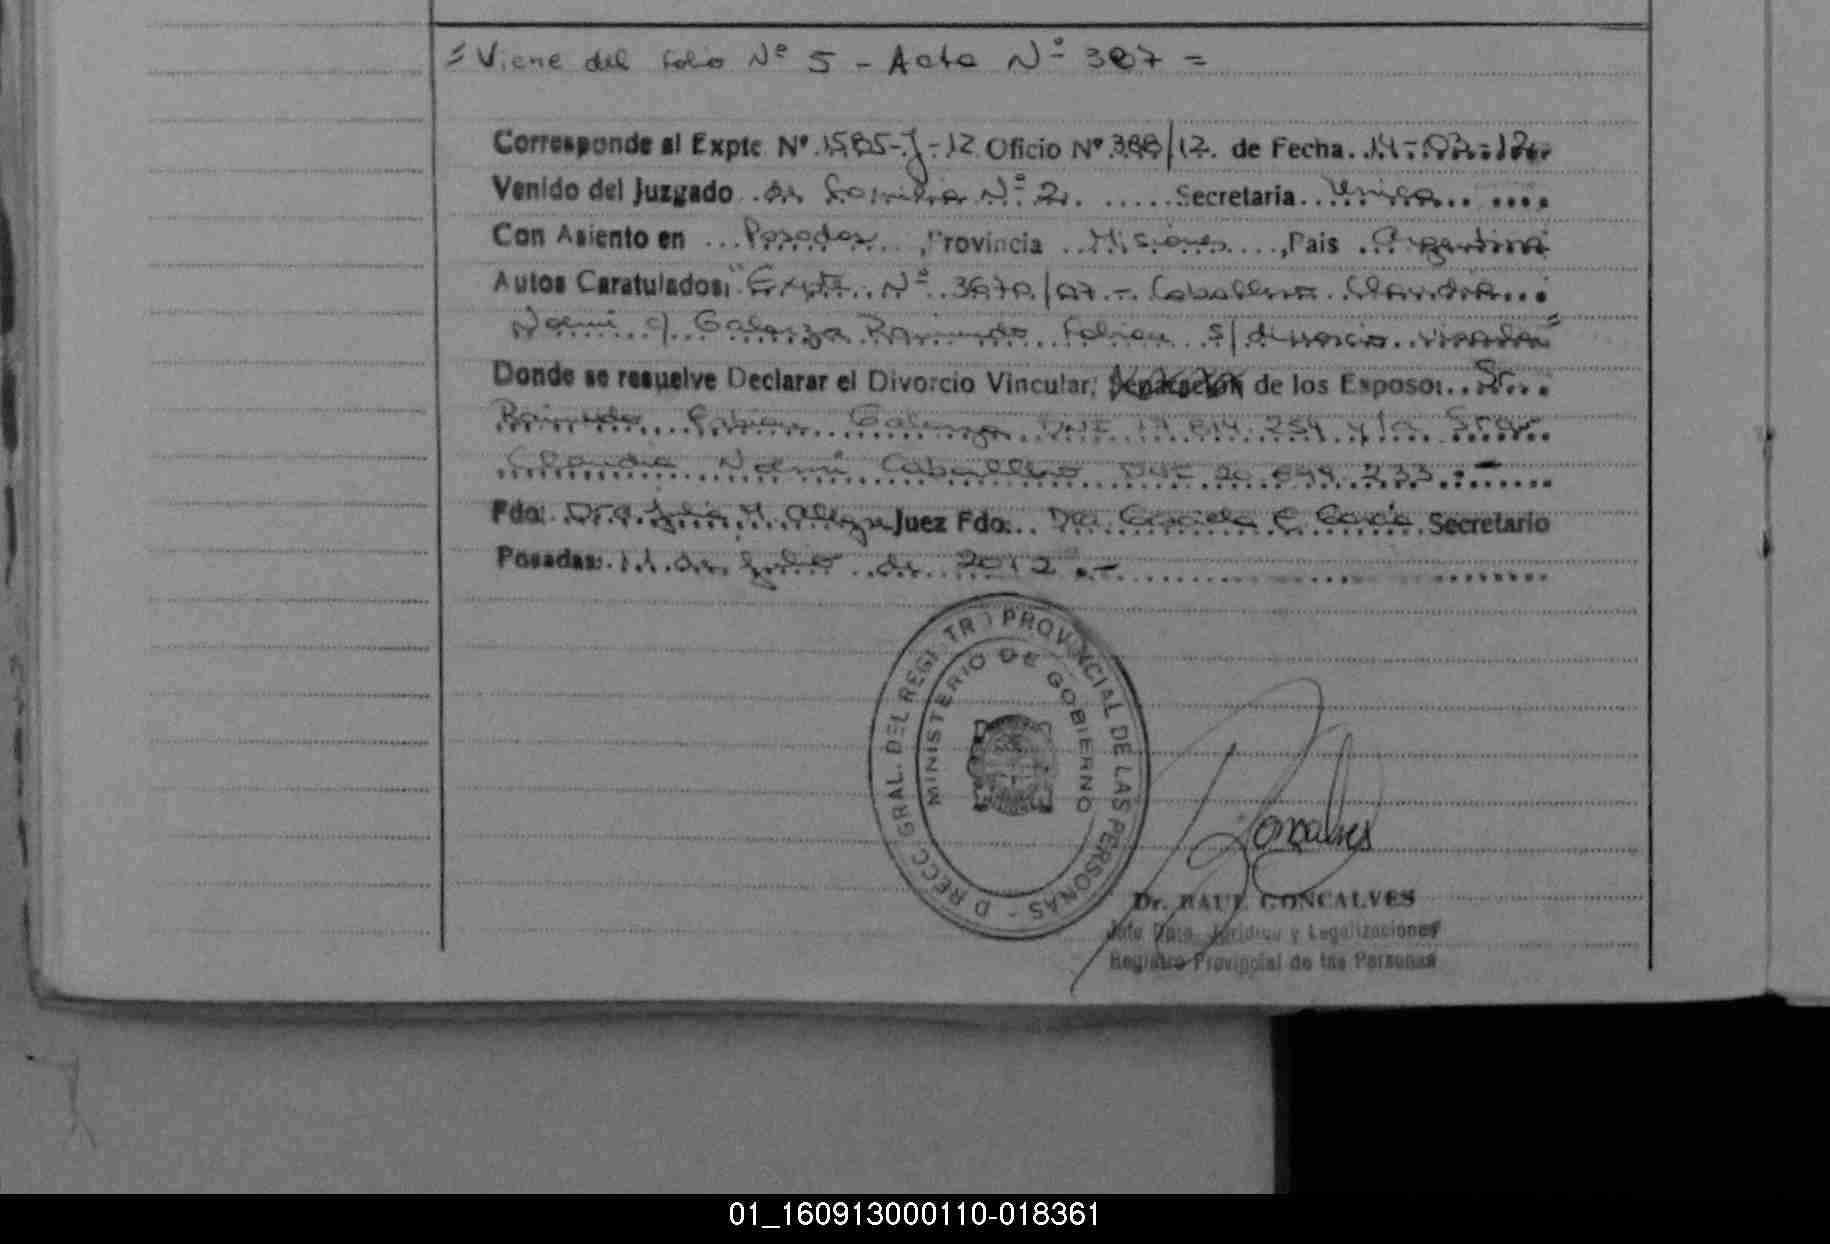 = Viene del folio Nº 5 - Acta Nº 387 =
Corresponde al Expte Nº 1585-J-12 Oficio Nº 388/12. de Fecha. 14-02-12
Venido del Juzgado de Familia Nº 2. Secretaria. Unica
Con Asiento en Posadas, Provincia Misiones, Pais Argentina
Autos Caratulados: "Expte. Nº 3670/07 - Caballero Claudia
Noemi c/ Galarza Raimundo Fabian s/ divorcio vincular"
Donde se resuelve Declarar el Divorcio Vincular, Separación de los Esposos Sr.
Raimundo Fabian Galarza DNI 17.814.254 y la Sra
Claudia Noemi Caballero DNI 20.649.233.-
Fdo: Dra. Julia Juez Fdo: Dra. Graciela Secretario
Posadas: 11 de Julio de 2012.-
DIRECC. GRAL. DEL REGISTRO PROVINCIAL DE LAS PERSONAS -
MINISTERIO DE GOBIERNO
Goncalves
Dr. RAUL GONCALVES
Jefe Dpto. Jurídico y Legalizaciones
Registro Provincial de las Personas
01_160913000110-018361